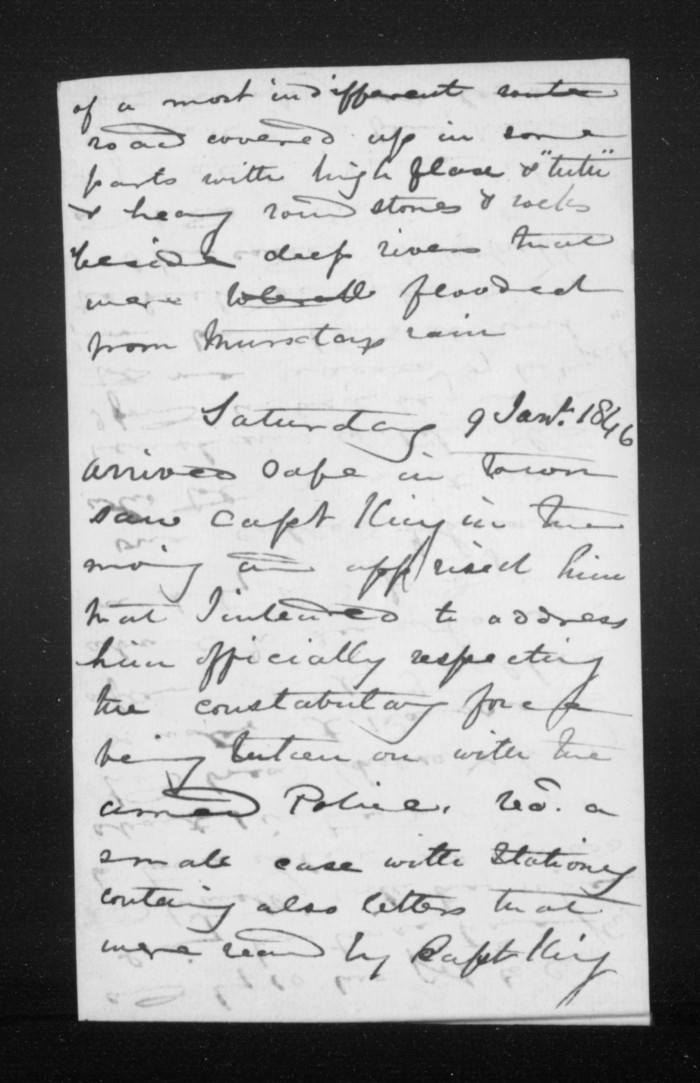 of a most indifferent route
road covered up in some
parts with high flax & "tutu"
& heavy round stones & rocks
beside deep rivers that
were flooded
from Thursdays rain
Saturday 9 Jany. 1846
arrived safe in Town
saw Capt King in the
morning and apprised him
that I intended to address
him officially respecting
the constabulary force
being taken on with the
armed Police. recd. a
small case with Stationery
containing also letters that
were read by Capt King